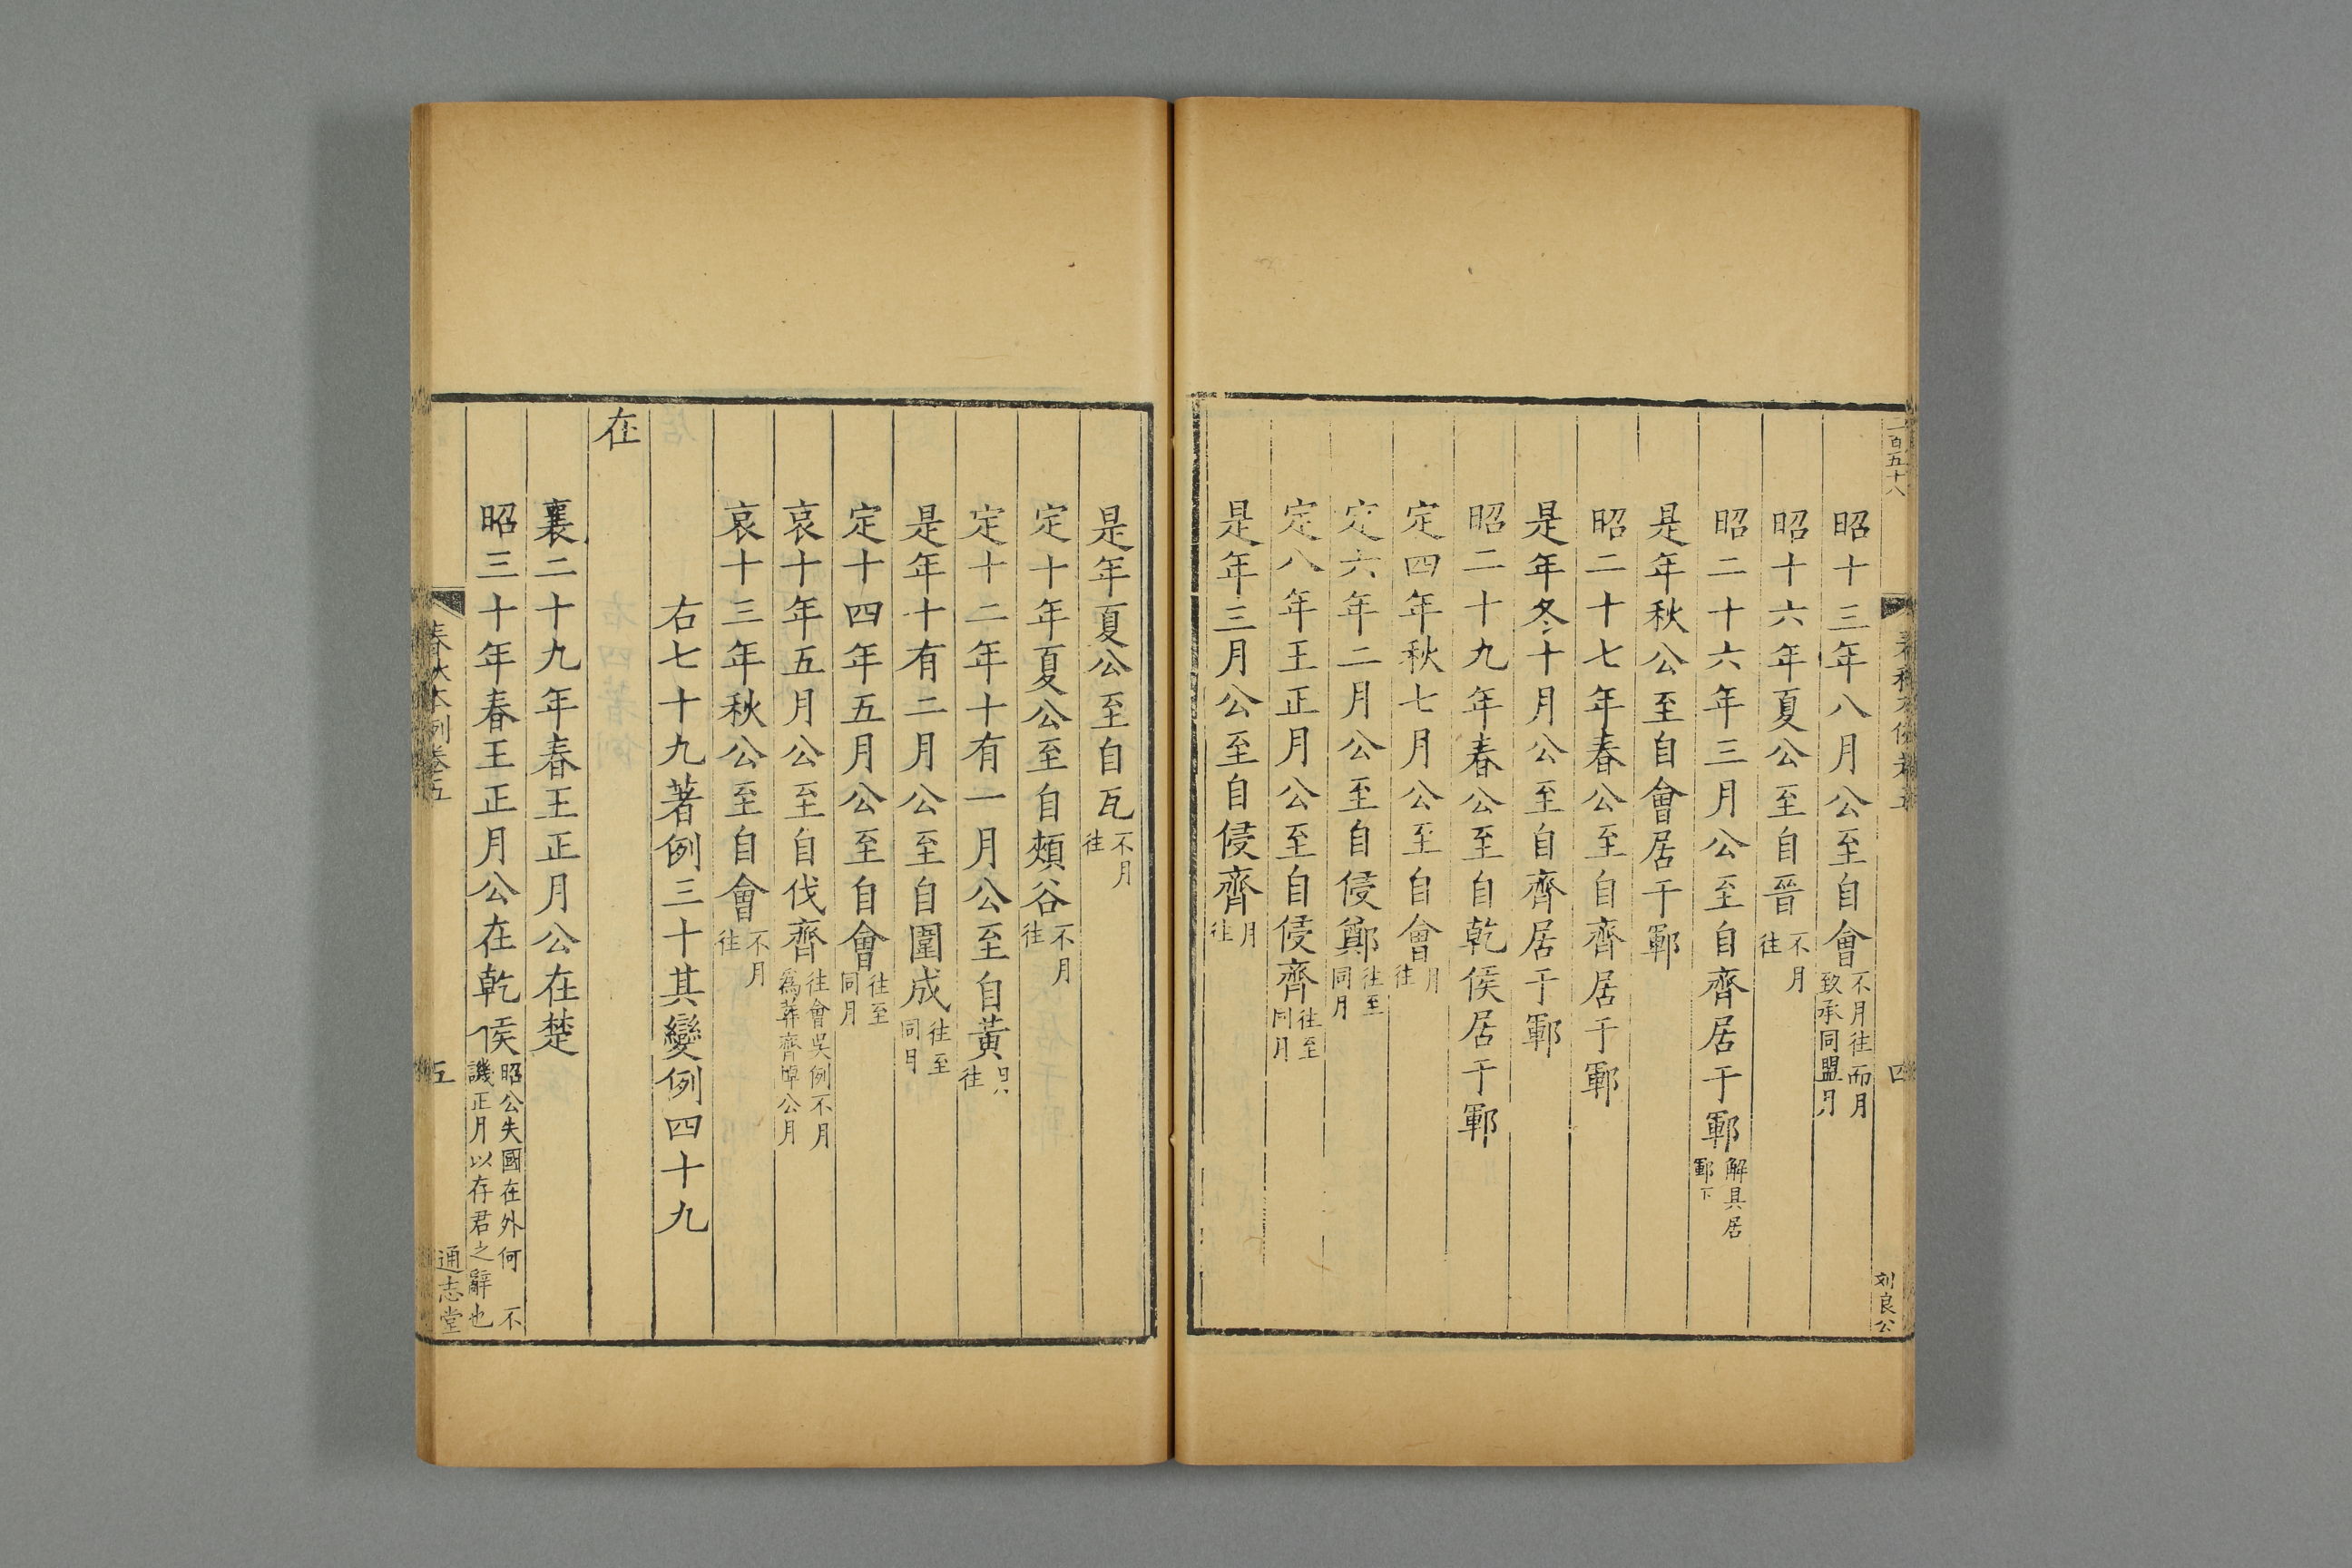 二百五十八
春秋本例卷五
四
刘良公
昭十三年八月公至自會不月往而月致承同盟月
昭十六年夏公至自晉不月往
昭二十六年三月公至自齊居于鄆解具居鄆下
是年秋公至自會居于鄆
昭二十七年春公至自齊居于鄆
是年冬十月公至自齊居于鄆
昭二十九年春公至自乾侯居于鄆
定四年秋七月公至自會月往
定六年二月公至自侵鄭往至同月
定八年王正月公至自侵齊往至同月
是年三月公至自侵齊月往
是年夏公至自瓦不月往
定十年夏公至自頰谷不月往
定十二年十有一月公至自黃往
是年十有二月公至自圍成往至同月
定十四年五月公至自會往至同月
哀十年五月公至自伐齊往會吳例不月爲葬齊悼公月
哀十三年秋公至自會不月往
右七十九著例三十其變例四十九
在
襄二十九年春王正月公在楚
昭三十年春王正月公在乾侯昭公失國在外何不譏正月以存君之辭也
春秋本例卷五
五
通志堂